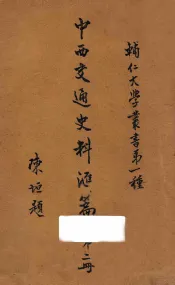 輔仁大學叢書第一種
中西交通史料滙篇
二冊
陳垣題